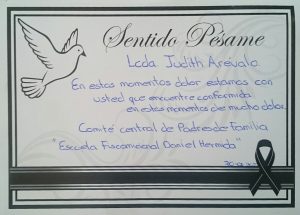 Sentido Pésame
Lcda Judith Arevalo
En estos momentos dolor estamos con
usted que encuentre conformida
en estos momentos de mucho dolor.
Comité central de Padres de Familia
"Escuela Fiscomisional Daniel Hermida"